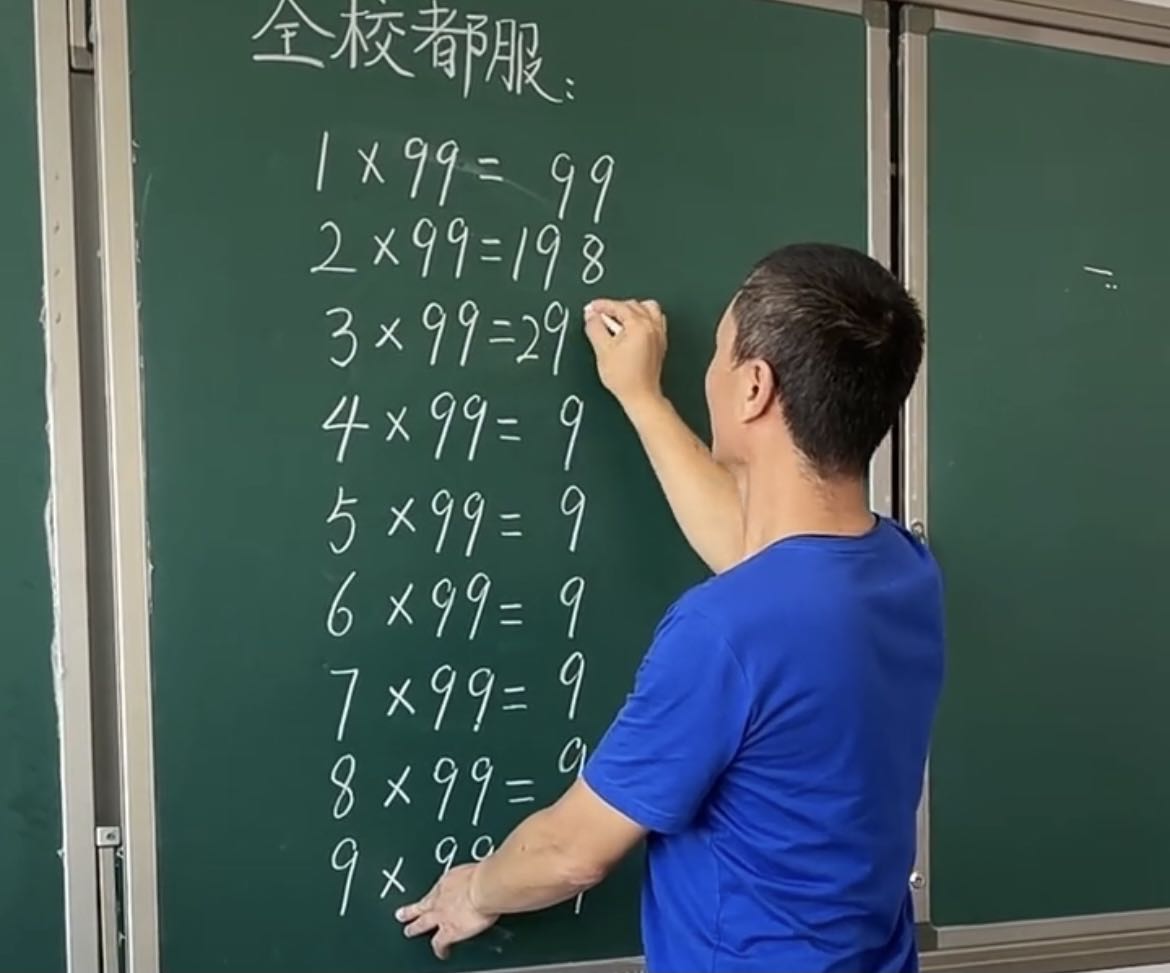 全校都服:
1 × 99 = 99
2 × 99 = 198
3 × 99 = 29
4 × 99 = 9
5 × 99 = 9
6 × 99 = 9
7 × 99 = 9
8 × 99 = 9
9 × 99